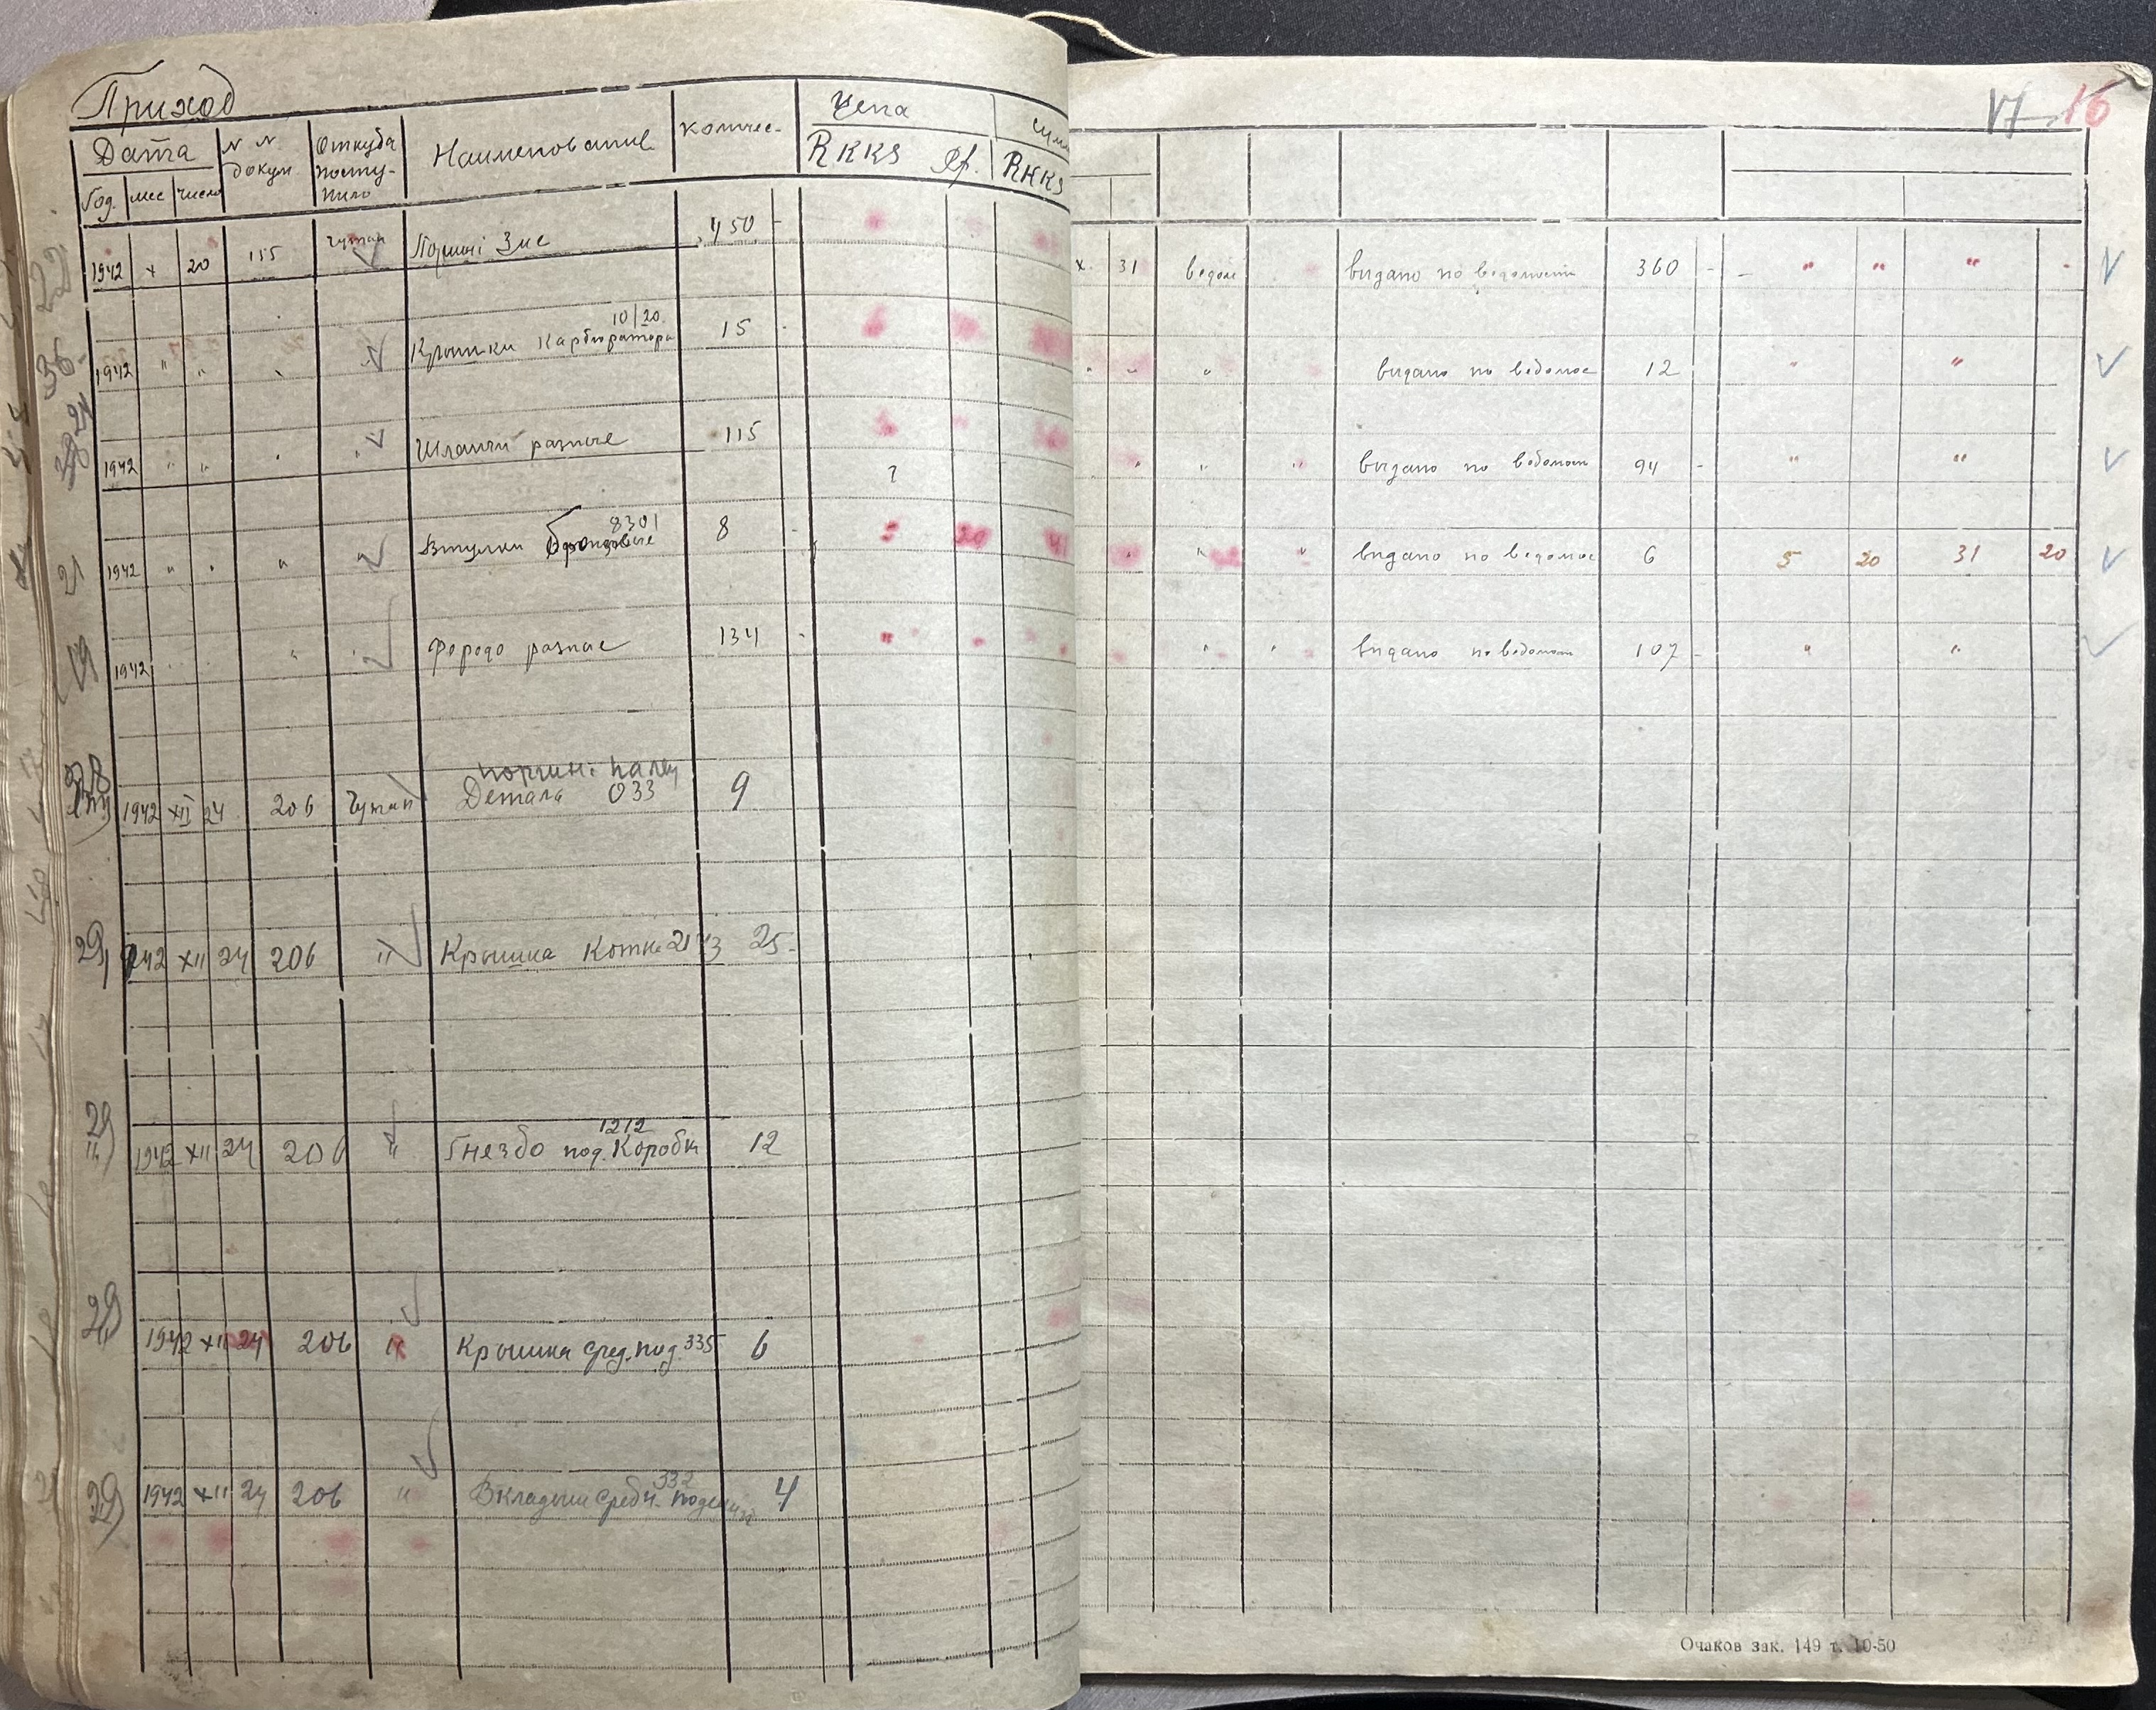 Приход
17 16
Дата
N N докум
Откуда посту-пило
Наименование
Количес-
Цена
Год. мес число
RKKS Pf. RKKS
1942 x 20 115 Поршні Зис 450 -
x. 31 ведом видано по ведомости 360 - - " " " "
1942 " " " Крышки карбюратора 10/20 15 -
" " " видано по ведомос 12 " "
1942 " " " Шланги разные 115
" " " видано по ведомост 94 - " "
?
1942 " " " Втулки бронзовые 8301 8 - 20 41
" " " видано по ведомос 6 5 20 31 20
1942 " " " Феродо разное 134 - "
" " видано по ведомост 107 - " "
поршн. палец
1942 XII 24 206 Чутап Детала 033 9
29
1942 XII 24 206 " Крышка Котк. 2173 25-
29
"
1212
1942 XII 24 206 " Гнездо под. Коробк 12
29
1942 XII 24 206 " Крышка сред. под. 335 6
29
332
1942 XII 24 206 " Вкладыш средн. 4
Очаков зак. 149 т. 10-50